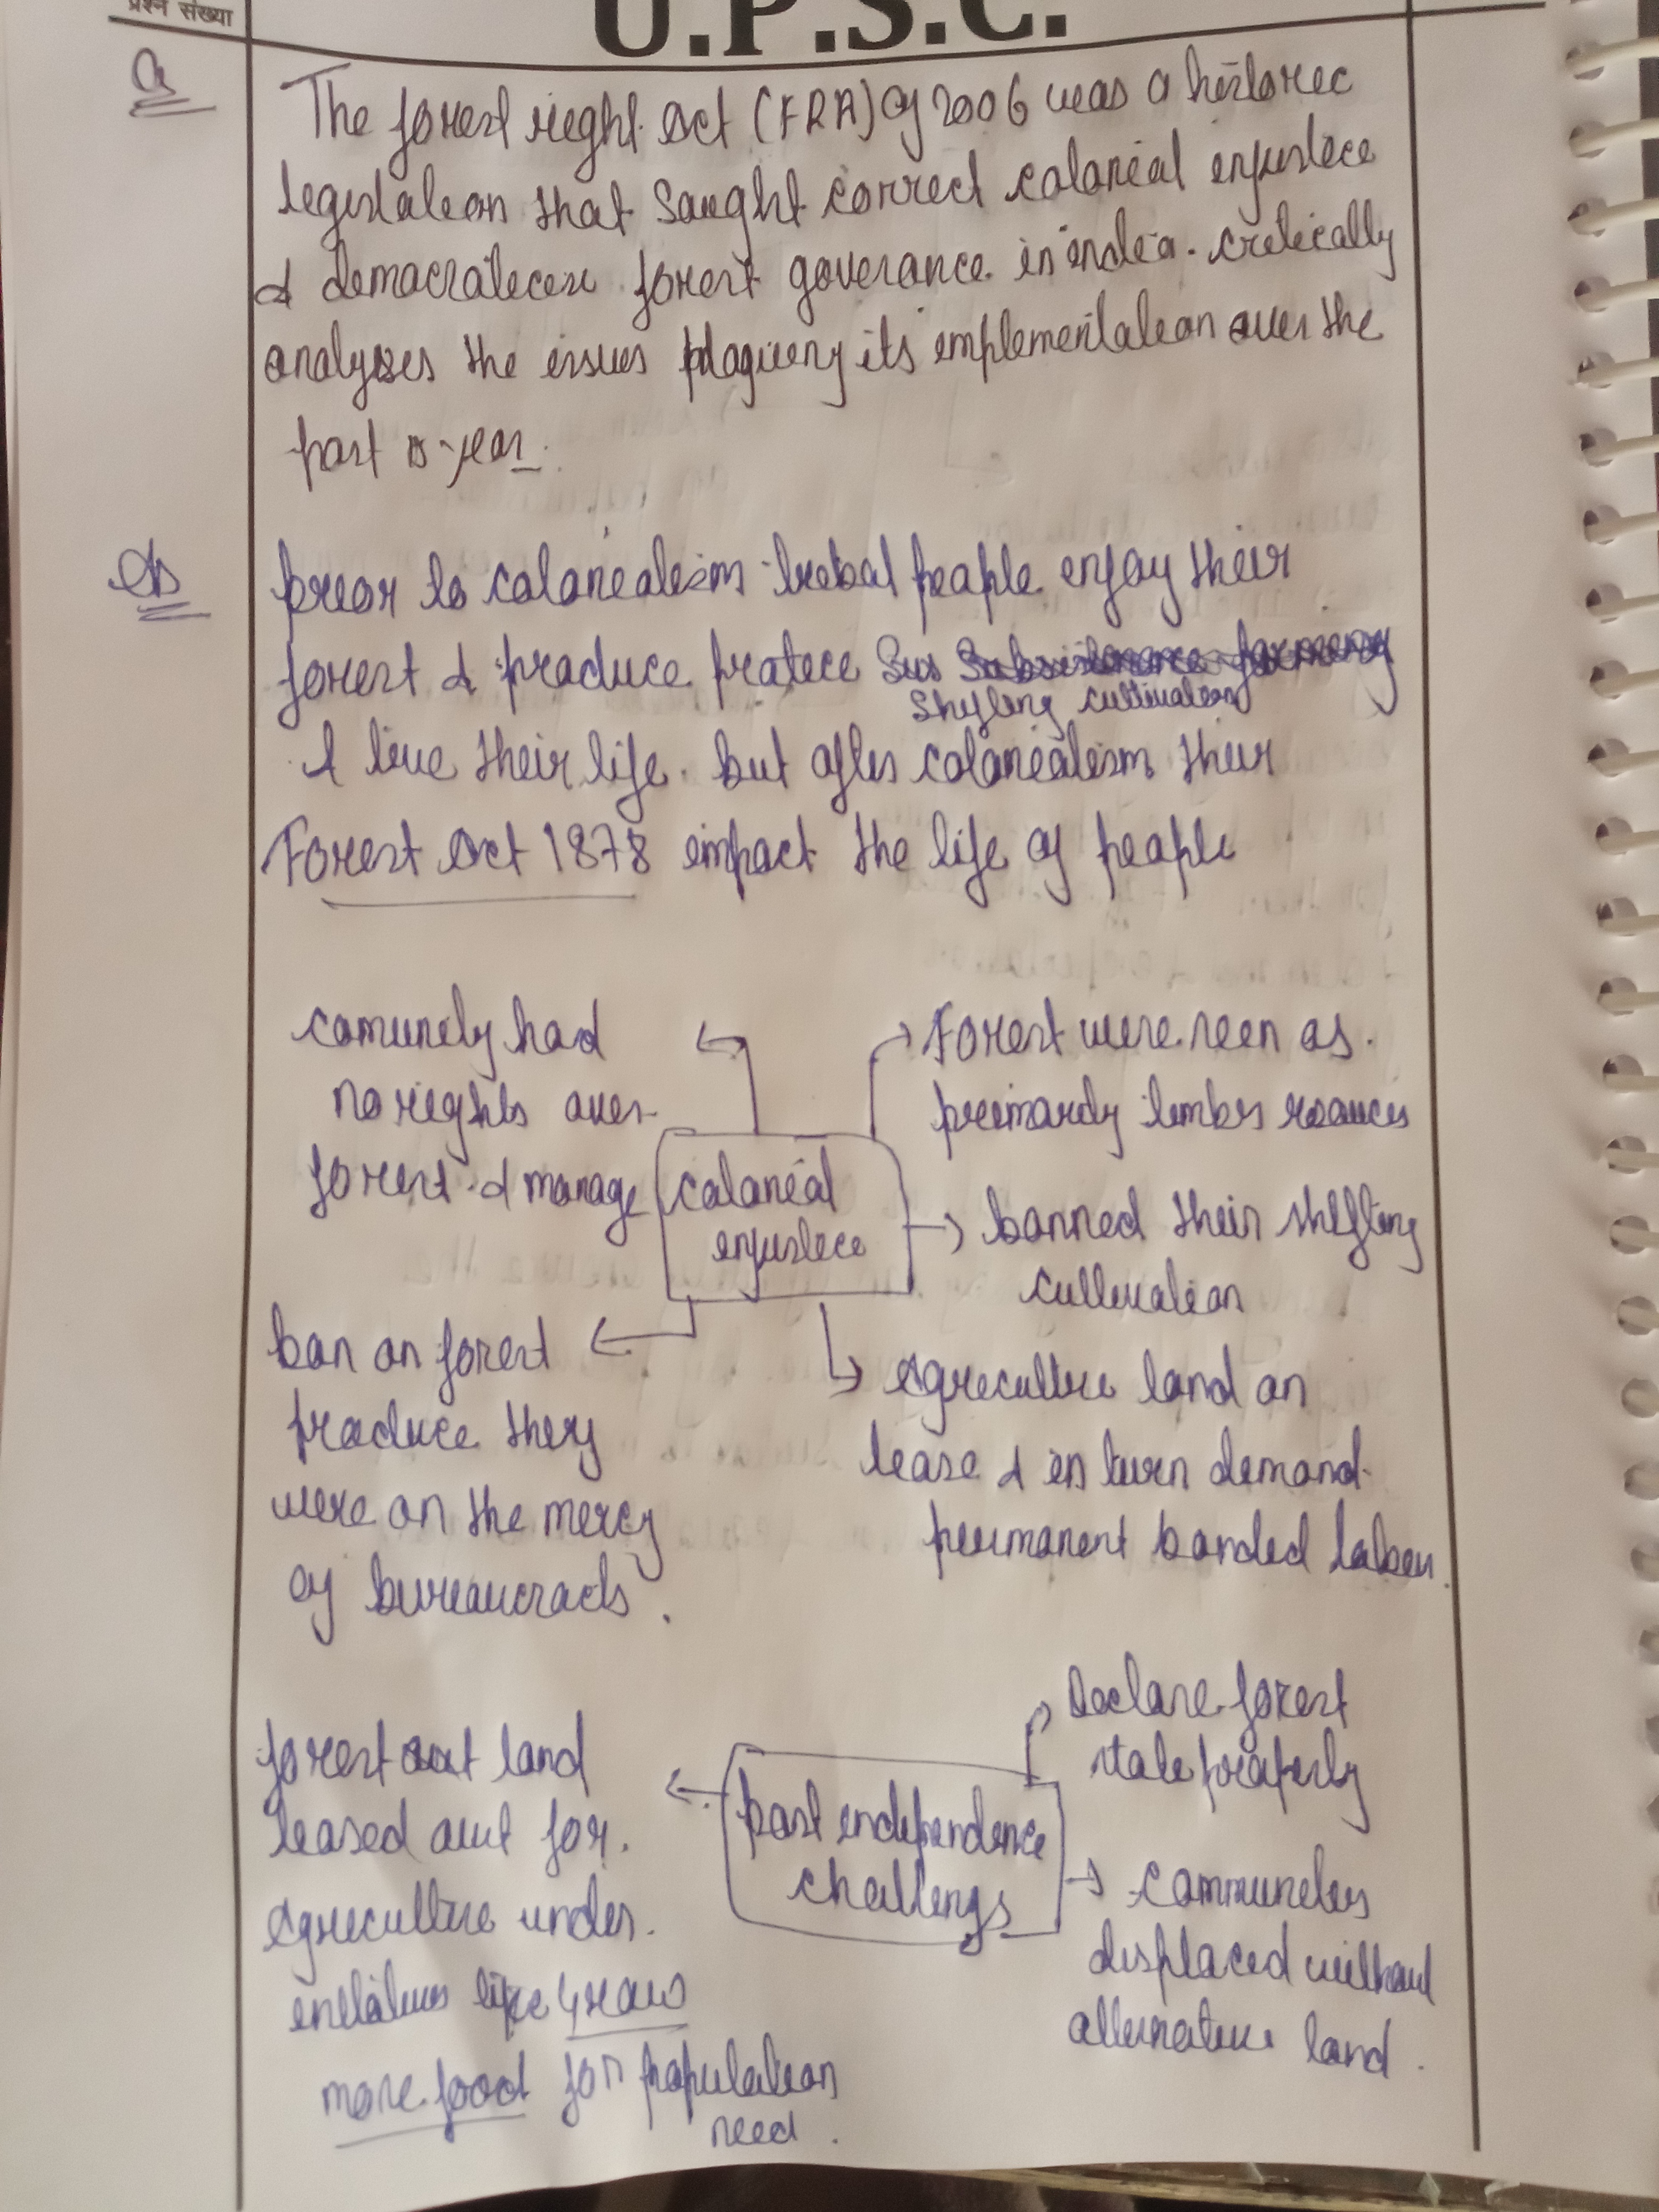 प्रश्न संख्या
U.P.S.C.
Q
The forest right Act (FRA) of 2006 was a historic
legislation that sought correct colonial injustice
& democraticise forest goverance in india. critically
analyses the issues plaguing its implementation over the
past year.
Ans
prior to colonialism tribal people enjoy their
forest & produce pratice Sus Subsistence farming
shifting cultivation
& live their life. but after colonialism their
Forest Act 1878 impact the life of people
comunity had
no rights over
forest & manage
Forest were seen as
primardy timber resources
colonial
injustice
banned their shifting
cultivation
ban on forest
produce they
were on the mercy
of bureaucracts.
Agriculture land on
lease & in turn demand
permanent bonded labour.
Declare forest
state property
forest land
leased out for
agriculture under
initiatives like grow
more food for population
need.
post independence
challengs
communities
displaced without
alternative land.